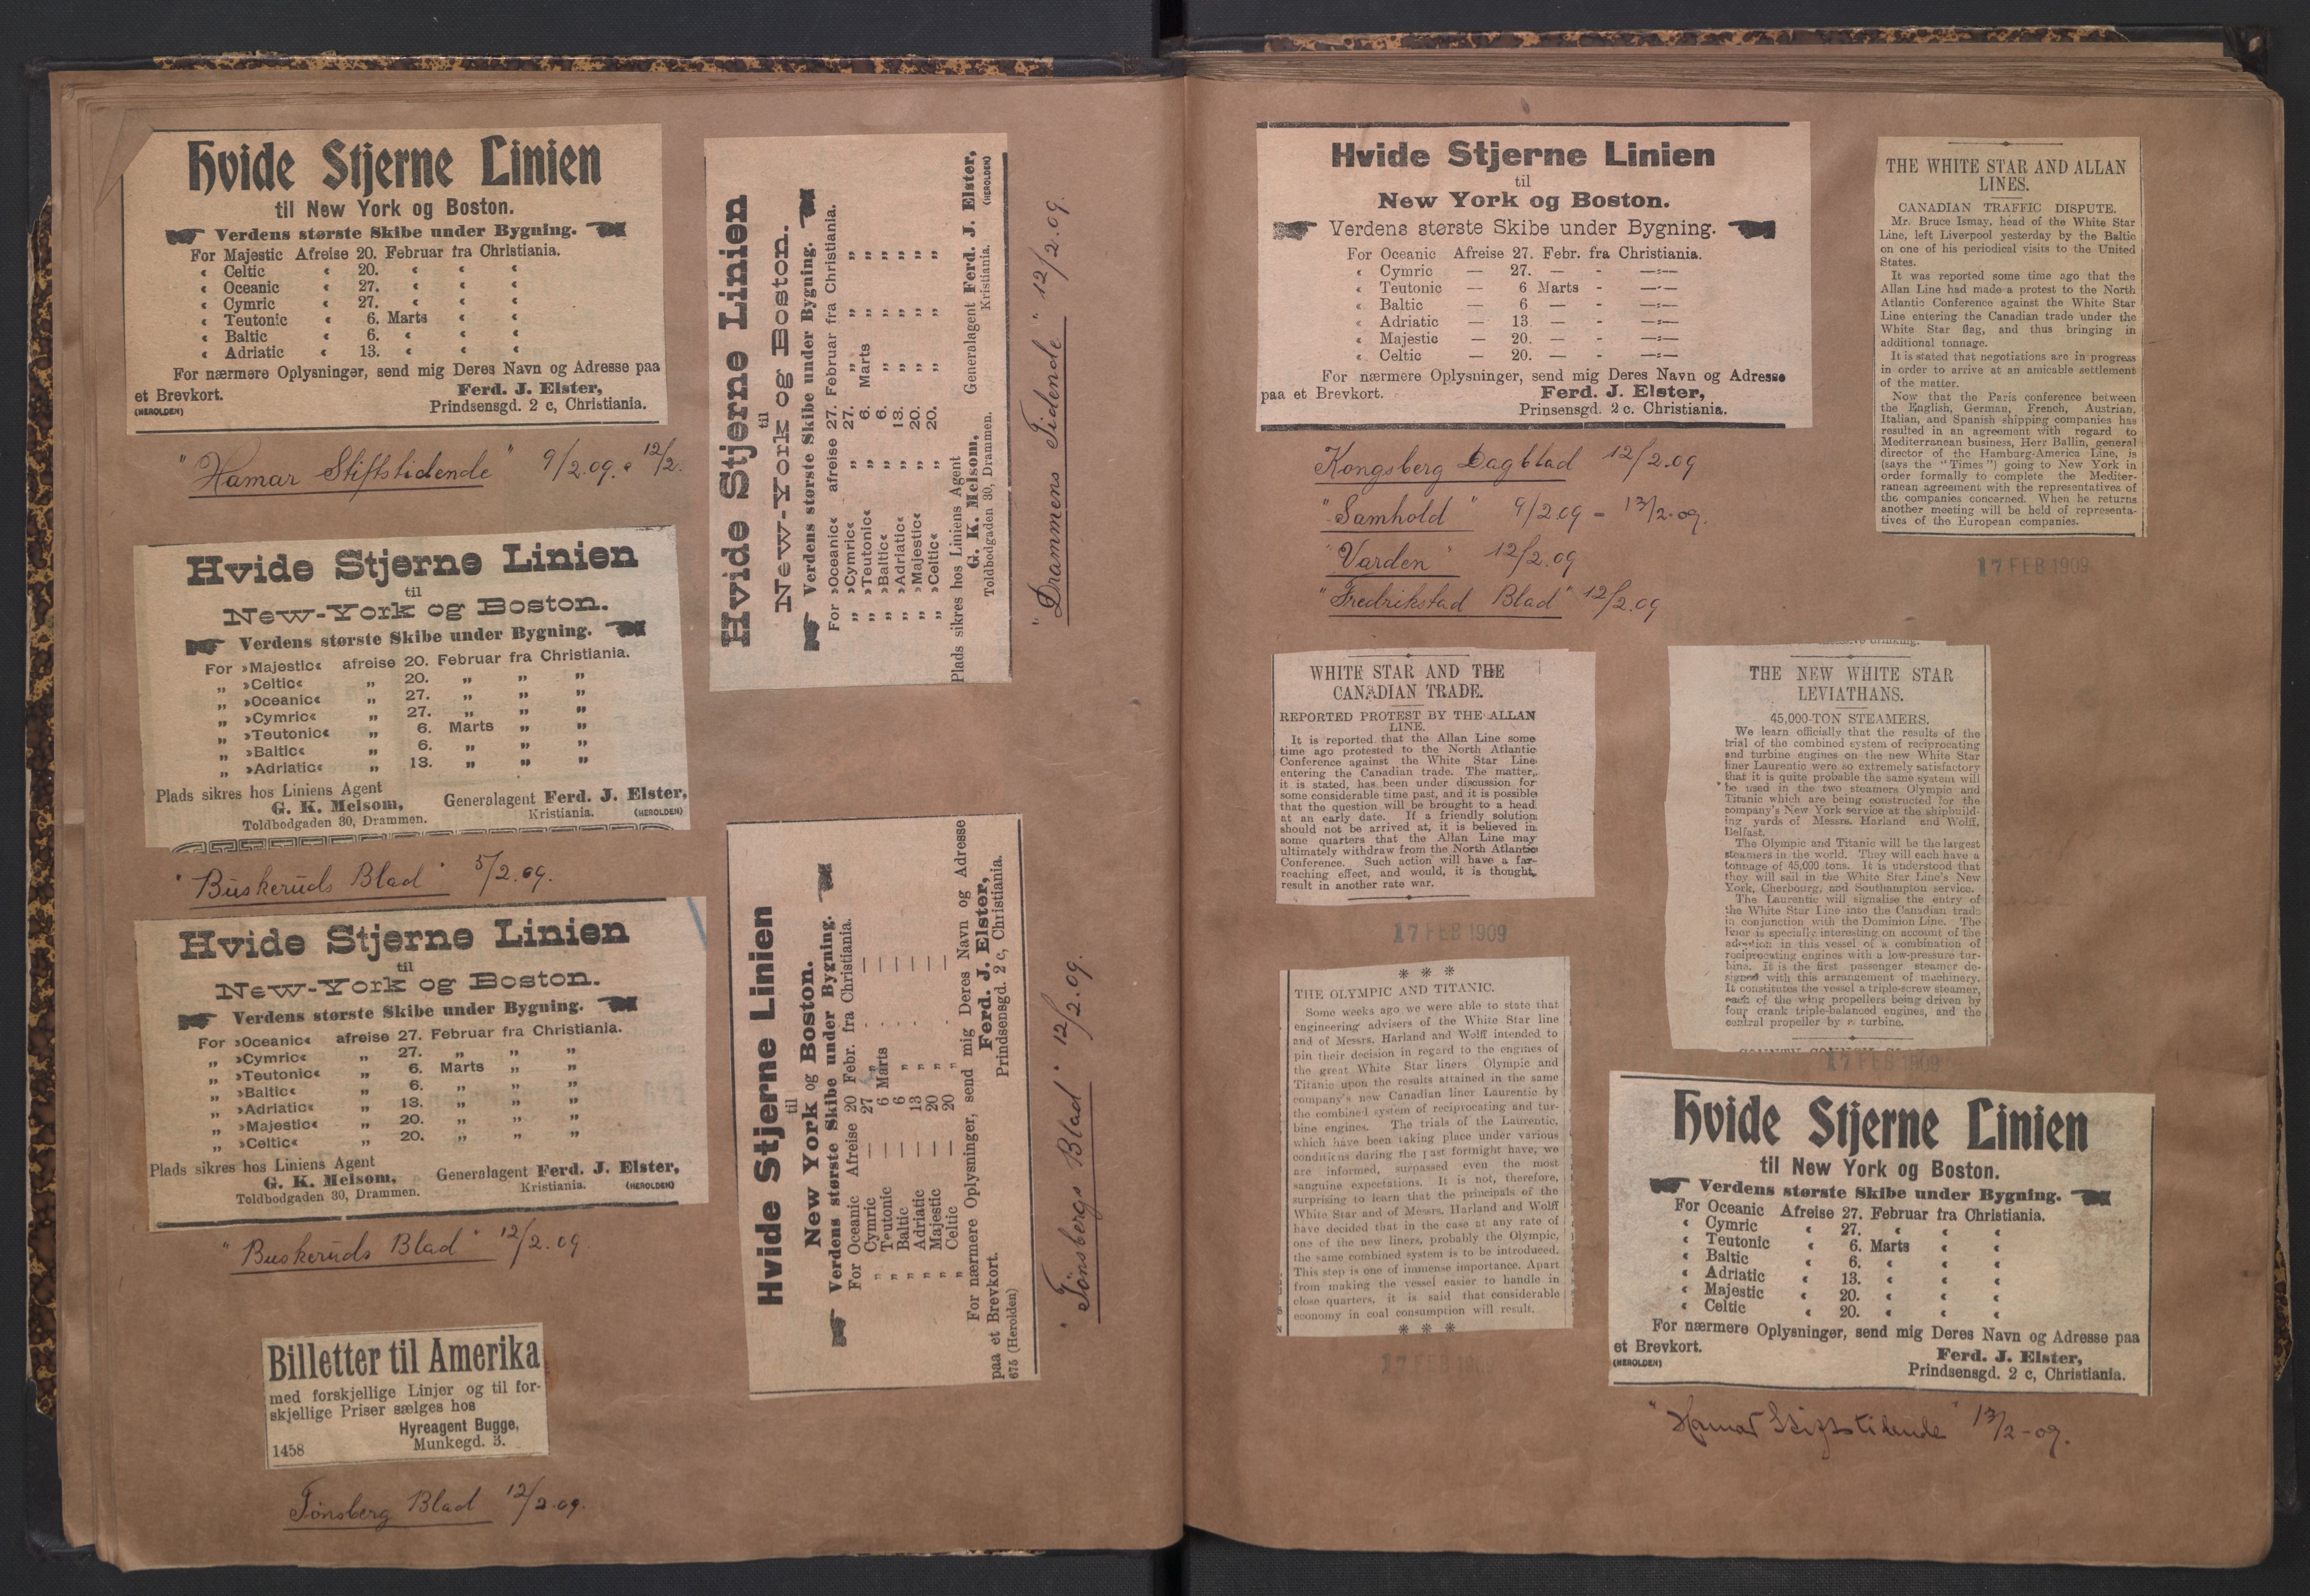 Hvide Stjerne Linien
til New York og Boston.
Verdens største Skibe under Bygning.
For Majestic Afreise 20. Februar fra Christiania.
« Celtic « 20. « « «
« Oceanic « 27. « « «
« Cymric « 27. « « «
« Teutonic « 6. Marts « «
« Baltic « 6. « « «
« Adriatic « 13. « « «
For nærmere Oplysninger, send mig Deres Navn og Adresse paa
et Brevkort. Ferd. J. Elster,
(HEROLDEN) Prindsensgd. 2 c, Christiania.
"Hamar Stiftstidende" 9/2.09. & 12/2.
Hvide Stjerne Linien
til
New-York og Boston.
Verdens største Skibe under Bygning.
For »Majestic« afreise 20. Februar fra Christiania.
„ »Celtic« „ 20. „ „ „
„ »Oceanic« „ 27. „ „ „
„ »Cymric« „ 27. „ „ „
„ »Teutonic« „ 6. Marts „ „
„ »Baltic« „ 6. „ „ „
„ »Adriatic« „ 13. „ „ „
Plads sikres hos Liniens Agent
G. K. Melsom, Generalagent Ferd. J. Elster,
Toldbodgaden 30, Drammen. Kristiania. (HEROLDEN)
"Buskeruds Blad" 5/2.09.
Hvide Stjerne Linien
til
New-York og Boston.
Verdens største Skibe under Bygning.
For »Oceanic« afreise 27. Februar fra Christiania.
„ »Cymric« „ 27. „ „ „
„ »Teutonic« „ 6. Marts „ „
„ »Baltic« „ 6. „ „ „
„ »Adriatic« „ 13. „ „ „
„ »Majestic« „ 20. „ „ „
„ »Celtic« „ 20. „ „ „
Plads sikres hos Liniens Agent
G. K. Melsom, Generalagent Ferd. J. Elster,
Toldbodgaden 30, Drammen. Kristiania. (HEROLDEN)
"Buskeruds Blad" 12/2.09
Billetter til Amerika
med forskjellige Linjer og til for-
skjellige Priser sælges hos
Hyreagent Bugge,
1458 Munkegd. 3.
Tönsberg Blad 12/2.09.
Hvide Stjerne Linien
til
New-York og Boston.
Verdens største Skibe under Bygning.
For »Oceanic« afreise 27. Februar fra Christiania.
„ »Cymric« „ 27. „ „ „
„ »Teutonic« „ 6. Marts „ „
„ »Baltic« „ 6. „ „ „
„ »Adriatic« „ 13. „ „ „
„ »Majestic« „ 20. „ „ „
„ »Celtic« „ 20. „ „ „
Plads sikres hos Liniens Agent
G. K. Melsom, Generalagent Ferd. J. Elster,
Toldbodgaden 30, Drammen. Kristiania. (HEROLDEN)
"Drammens Tidende" 12/2.09.
Hvide Stjerne Linien
til
New York og Boston.
Verdens største Skibe under Bygning.
For Oceanic Afreise 20 Febr. fra Christiania.
„ Cymric — 27 „ - —
„ Teutonic — 6 Marts - —
„ Baltic — 6 „ - —
„ Adriatic — 13 „ - —
„ Majestic — 20 „ - —
„ Celtic — 20 „ - —
For nærmere Oplysninger, send mig Deres Navn og Adresse
paa et Brevkort. Ferd. J. Elster,
675 (Herolden) Prindsensgd. 2 c, Christiania.
"Tönsbergs Blad" 12/2.09.
Hvide Stjerne Linien
til
New York og Boston.
Verdens største Skibe under Bygning.
For Oceanic Afreise 27. Febr. fra Christiania.
« Cymric — 27. — - —:—
« Teutonic — 6 Marts - —:—
« Baltic — 6 — - —:—
« Adriatic — 13 — - —:—
« Majestic — 20. — - —:—
« Celtic — 20. — - —:—
For nærmere Oplysninger, send mig Deres Navn og Adresse
paa et Brevkort. Ferd. J. Elster,
Prinsensgd. 2 c. Christiania.
Kongsberg Dagblad 12/2.09
"Samhold" 9/2.09 - 13/2.09.
"Varden" 12/2.09
"Fredrikstad Blad" 12/2.09
THE WHITE STAR AND ALLAN
LINES.
CANADIAN TRAFFIC DISPUTE.
Mr. Bruce Ismay, head of the White Star
Line, left Liverpool yesterday by the Baltic
on one of his periodical visits to the United
States.
It was reported some time ago that the
Allan Line had made a protest to the North
Atlantic Conference against the White Star
Line entering the Canadian trade under the
White Star flag, and thus bringing in
additional tonnage.
It is stated that negotiations are in progress
in order to arrive at an amicable settlement
of the matter.
Now that the Paris conference between
the English, German, French, Austrian,
Italian, and Spanish shipping companies has
resulted in an agreement with regard to
Mediterranean business, Herr Ballin, general
director of the Hamburg-America Line, is
(says the "Times") going to New York in
order formally to complete the Mediter-
ranean agreement with the representatives of
the companies concerned. When he returns
another meeting will be held of representa-
tives of the European companies.
17 FEB 1909
WHITE STAR AND THE
CANADIAN TRADE.
REPORTED PROTEST BY THE ALLAN
LINE.
It is reported that the Allan Line some
time ago protested to the North Atlantic
Conference against the White Star Line
entering the Canadian trade. The matter,
it is stated, has been under discussion for
some considerable time past, and it is possible
that the question will be brought to a head
at an early date. If a friendly solution
should not be arrived at, it is believed in
some quarters that the Allan Line may
ultimately withdraw from the North Atlantic
Conference. Such action will have a far-
reaching effect, and would, it is thought,
result in another rate war.
17 FEB 1909
* * *
THE OLYMPIC AND TITANIC.
Some weeks ago we were able to state that
engineering advisers of the White Star line
and of Messrs. Harland and Wolff intended to
pin their decision in regard to the engines of
the great White Star liners Olympic and
Titanic upon the results attained in the same
company's new Canadian liner Laurentic by
the combined system of reciprocating and tur-
bine engines. The trials of the Laurentic,
which have been taking place under various
conditions during the past fortnight have, we
are informed, surpassed even the most
sanguine expectations. It is not, therefore,
surprising to learn that the principals of the
White Star and of Messrs. Harland and Wolff
have decided that in the case at any rate of
one of the new liners, probably the Olympic,
the same combined system is to be introduced.
This step is one of immense importance. Apart
from making the vessel easier to handle in
close quarters, it is said that considerable
economy in coal consumption will result.
* * *
17 FEB 1909
THE NEW WHITE STAR
LEVIATHANS.
45,000-TON STEAMERS.
We learn officially that the results of the
trial of the combined system of reciprocating
and turbine engines on the new White Star
liner Laurentic were so extremely satisfactory
that it is quite probable the same system will
be used in the two steamers Olympic and
Titanic which are being constructed for the
company's New York service at the shipbuild-
ing yards of Messrs. Harland and Wolff,
Belfast.
The Olympic and Titanic will be the largest
steamers in the world. They will each have a
tonnage of 45,000 tons. It is understood that
they will sail in the White Star Line's New
York, Cherbourg, and Southampton service.
The Laurentic will signalise the entry of
the White Star Line into the Canadian trade
in conjunction with the Dominion Line. The
liner is specially interesting on account of the
adoption in this vessel of a combination of
reciprocating engines with a low-pressure tur-
bine. It is the first passenger steamer de-
signed with this arrangement of machinery.
It constitutes the vessel a triple-screw steamer,
each of the wing propellers being driven by
four crank triple-balanced engines, and the
central propeller by a turbine.
17 FEB 1909
Hvide Stjerne Linien
til New York og Boston.
Verdens største Skibe under Bygning.
For Oceanic Afreise 27. Februar fra Christiania.
« Cymric « 27. « « «
« Teutonic « 6. Marts « «
« Baltic « 6. « « «
« Adriatic « 13. « « «
« Majestic « 20. « « «
« Celtic « 20. « « «
For nærmere Oplysninger, send mig Deres Navn og Adresse paa
et Brevkort. Ferd. J. Elster,
(HEROLDEN) Prindsensgd. 2 c, Christiania.
"Hamar Stiftstidende" 13/2-09.